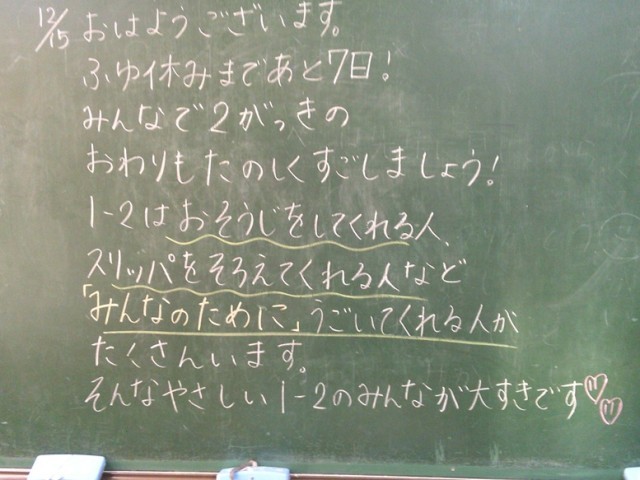 12/15 おはようございます。
ふゆ休みまであと7日!
みんなで2がっきの
おわりもたのしくすごしましょう!
1-2はおそうじをしてくれる人、
スリッパをそろえてくれる人など
「みんなのために」うごいてくれる人が
たくさんいます。
そんなやさしい1-2のみんなが大すきです